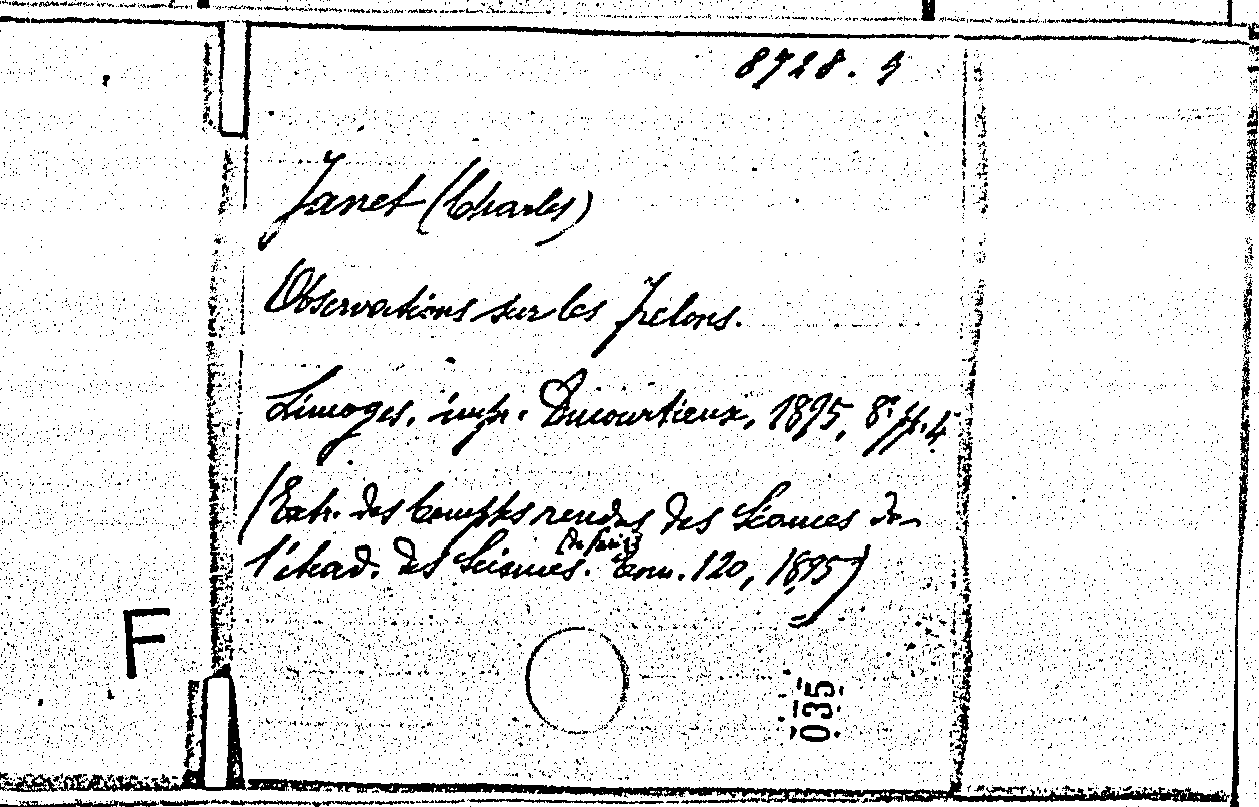 8728. 9
Janet (Charles)
Observations sur les frelons.
Limoges, impr. Ducourtieux, 1895, 8° pp. 4
(Extr. des Comptes rendus des Séances de
l'Acad. des Sciences. (de Paris) Tom. 120, 1895)
F
035